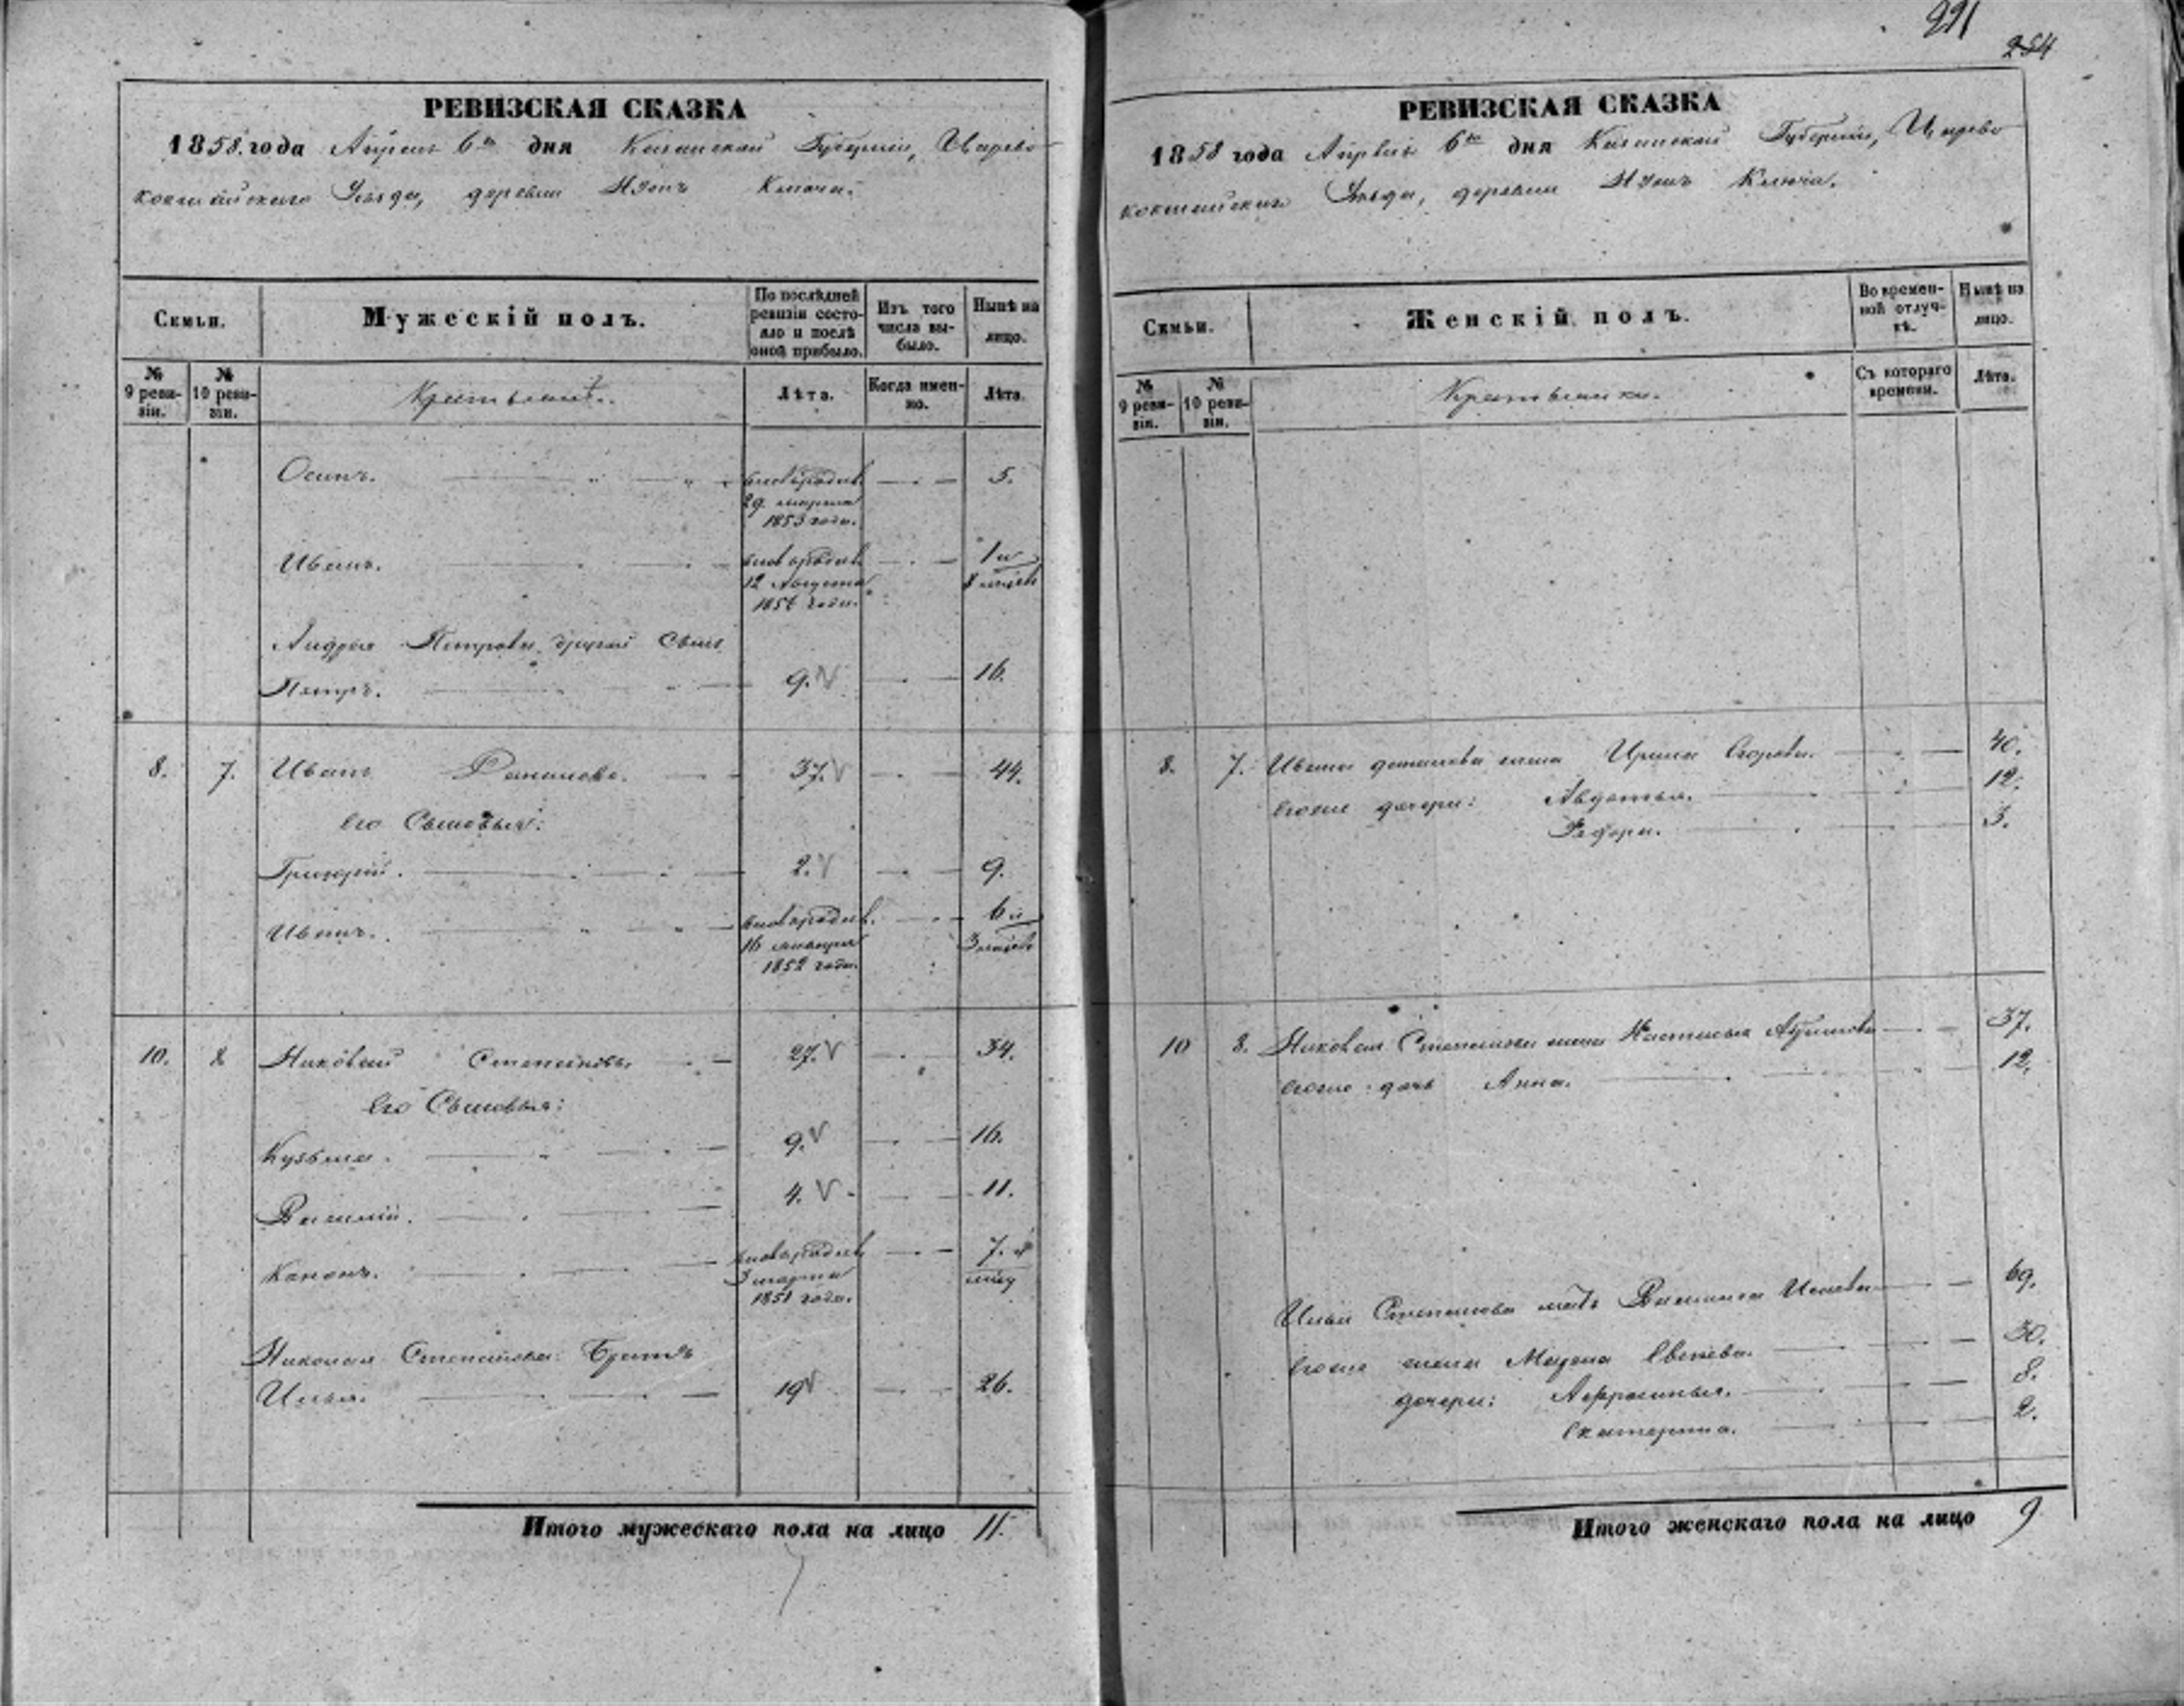 221
254
РЕВИЗСКАЯ СКАЗКА
1858 года Апреля 6го дня Казанской Губернии, Царево-
кокшайскаго Уезда, деревни Ключа.
Семьи.
Мужескій полъ.
По послѣдней ревизіи состояло и послѣ оной прибыло.
Изъ того числа выбыло.
Нынѣ на лицо.
№ 9 ревизіи.
№ 10 ревизіи.
Крестьянъ.
Лѣта.
Когда именно.
Лѣта.
Осипъ. новорожден. 5.
29 марта
1853 года.
Иванъ. новорожден. 1 и
12 Августа 8 месяцев
1856 года.
Андрея Петрова другой Сынъ
Петръ. 9. 16.
8. 7. Иванъ Данилова. 37. 44.
Его Сыновья:
Григорій. 2. 9.
Иванъ. новорожден. 6 и
16 января 3 месяцев
1852 года.
10. 8 Николай Степановъ. 27. 34.
Его Сыновья:
Кузьма. 9. 16.
Василій. 4. 11.
Канонъ. новорожден. 7.
3 марта
1851 года.
Николая Степанова Братъ
Илья. 19 26.
Итого мужескаго пола на лицо 11.
РЕВИЗСКАЯ СКАЗКА
1858 года Апреля 6го дня Казанской Губернии, Царево
кокшайскаго Уезда, деревни Ключа.
Семьи.
Женскій полъ.
Во временной отлучкѣ.
Нынѣ на лицо.
№ 9 ревизіи.
№ 10 ревизіи.
Крестьянки.
Съ котораго времени.
Лѣта.
8. 7. Ивана данилова жена Ирина Егорова. 40.
Егоже дочери: Авдотья. 12.
Федора. 3.
10 8. Николая Степанова жена Настасья 37.
Егоже дочь Анна. 12.
Ильи Степанова мать Василиса 69.
Егоже жена 30.
дочери: Аффросинья. 8.
Екатерина. 2.
Итого женскаго пола на лицо 9